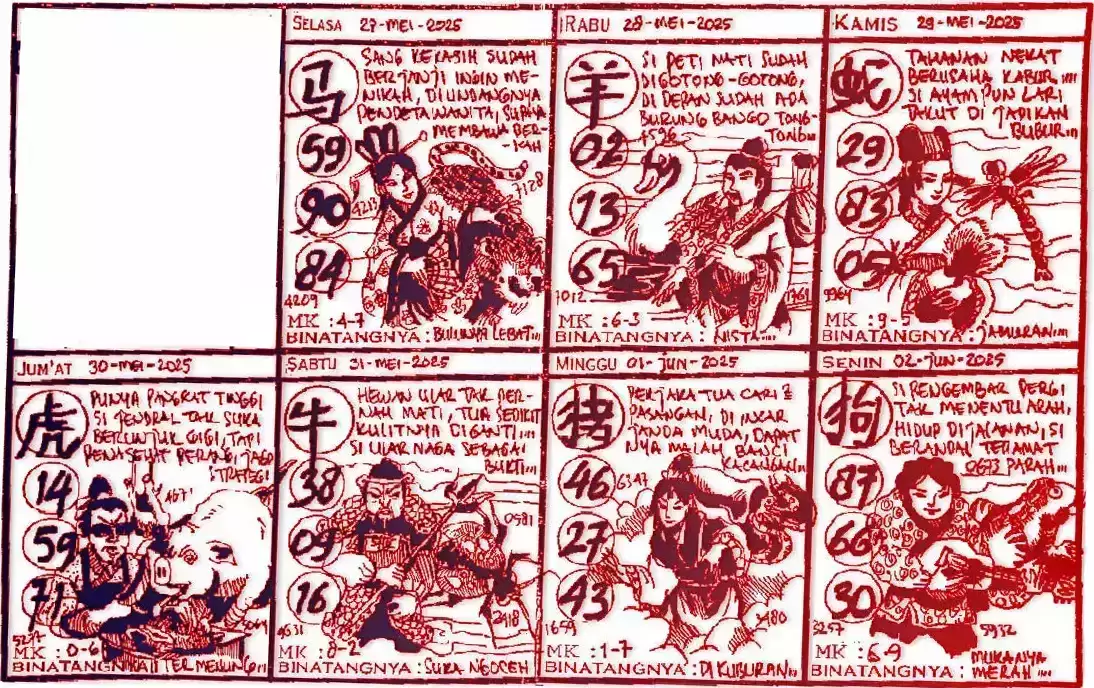 SELASA 27-MEI-2025
马
SANG KEKASIH SUDAH
BERJANJI INGIN ME-
NIKAH, DIUNDANGNYA
PENDETA WANITA, SUPAYA
MEMBAWA BER-
-KAH
59
90
84
4213
7128
4209
MK : 4-7
BINATANGNYA : BULUNYA LEBAT...
RABU 28-MEI-2025
羊
SI PETI MATI SUDAH
DIGOTONG-GOTONG,
DI DEPAN SUDAH ADA
BURUNG BANGO TONG-
TONG...
4596
02
13
65
7012
1761
MK : 6-3
BINATANGNYA : NISTA....
KAMIS 29-MEI-2025
蛇
TAHANAN NEKAT
BERUSAHA KABUR....
SI AYAM PUN LARI
TAKUT DI JADIKAN
BUBUR...
29
83
05
9964
MK : 9-5
BINATANGNYA : JAMURAN...
JUM'AT 30-MEI-2025
虎
PUNYA PANGKAT TINGGI
SI JENDRAL TAK SUKA
BERUNJUK GIGI, TAPI
PENASEHAT PERANG, JAGO
STRATEGI
14
59
71
4671
5064
5297
MK : 0-6
BINATANGNYA
SABTU 31-MEI-2025
牛
HEWAN ULAR TAK PER-
NAH MATI, TUA SEDIKIT
KULITNYA DIGANTI....
SI ULAR NAGA SEBAGAI
BUKTI...
38
09
16
0581
2418
4631
MK : 8-2
BINATANGNYA : SUKA NGOCEH
MINGGU 01-JUN-2025
猪
PERJAKA TUA CARI 2
PASANGAN, DI INKAR
JANDA MUDA, DAPAT
NYA MALAH BANCI
KACANGAN...
46
27
43
6347
3480
1659
MK : 1-7
BINATANGNYA : DI KUBURAN...
SENIN 02-JUN-2025
狗
SI PENGEMBAR PERGI
TAK MENENTU ARAH,
HIDUP DI JALANAN, SI
BERANDAL TERAMAT
PARAH...
0673
87
66
30
3257
5932
MK : 6-9
BINATANGNYA : MUKANYA
MERAH...